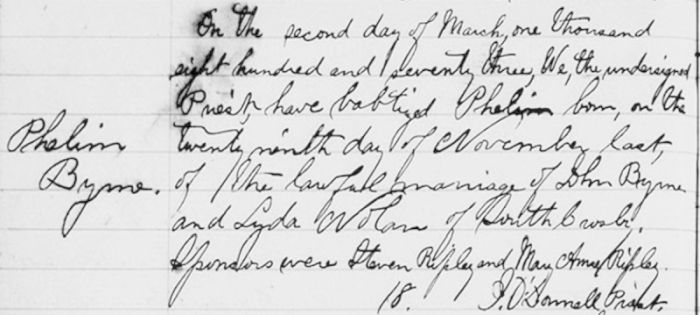 On the second day of March, one thousand
eight hundred and seventy three, We, the undersigned
Priest, have babtized Phelim born, on the
Phelim
twenty ninth day of November last,
Byrne.
of the lawful marriage of John Byrne
and Lyda Nolan of South Crosby.
Sponsors were Steven Ripley and Mary Anne Ripley.
18. J. O'Donnell Priest.